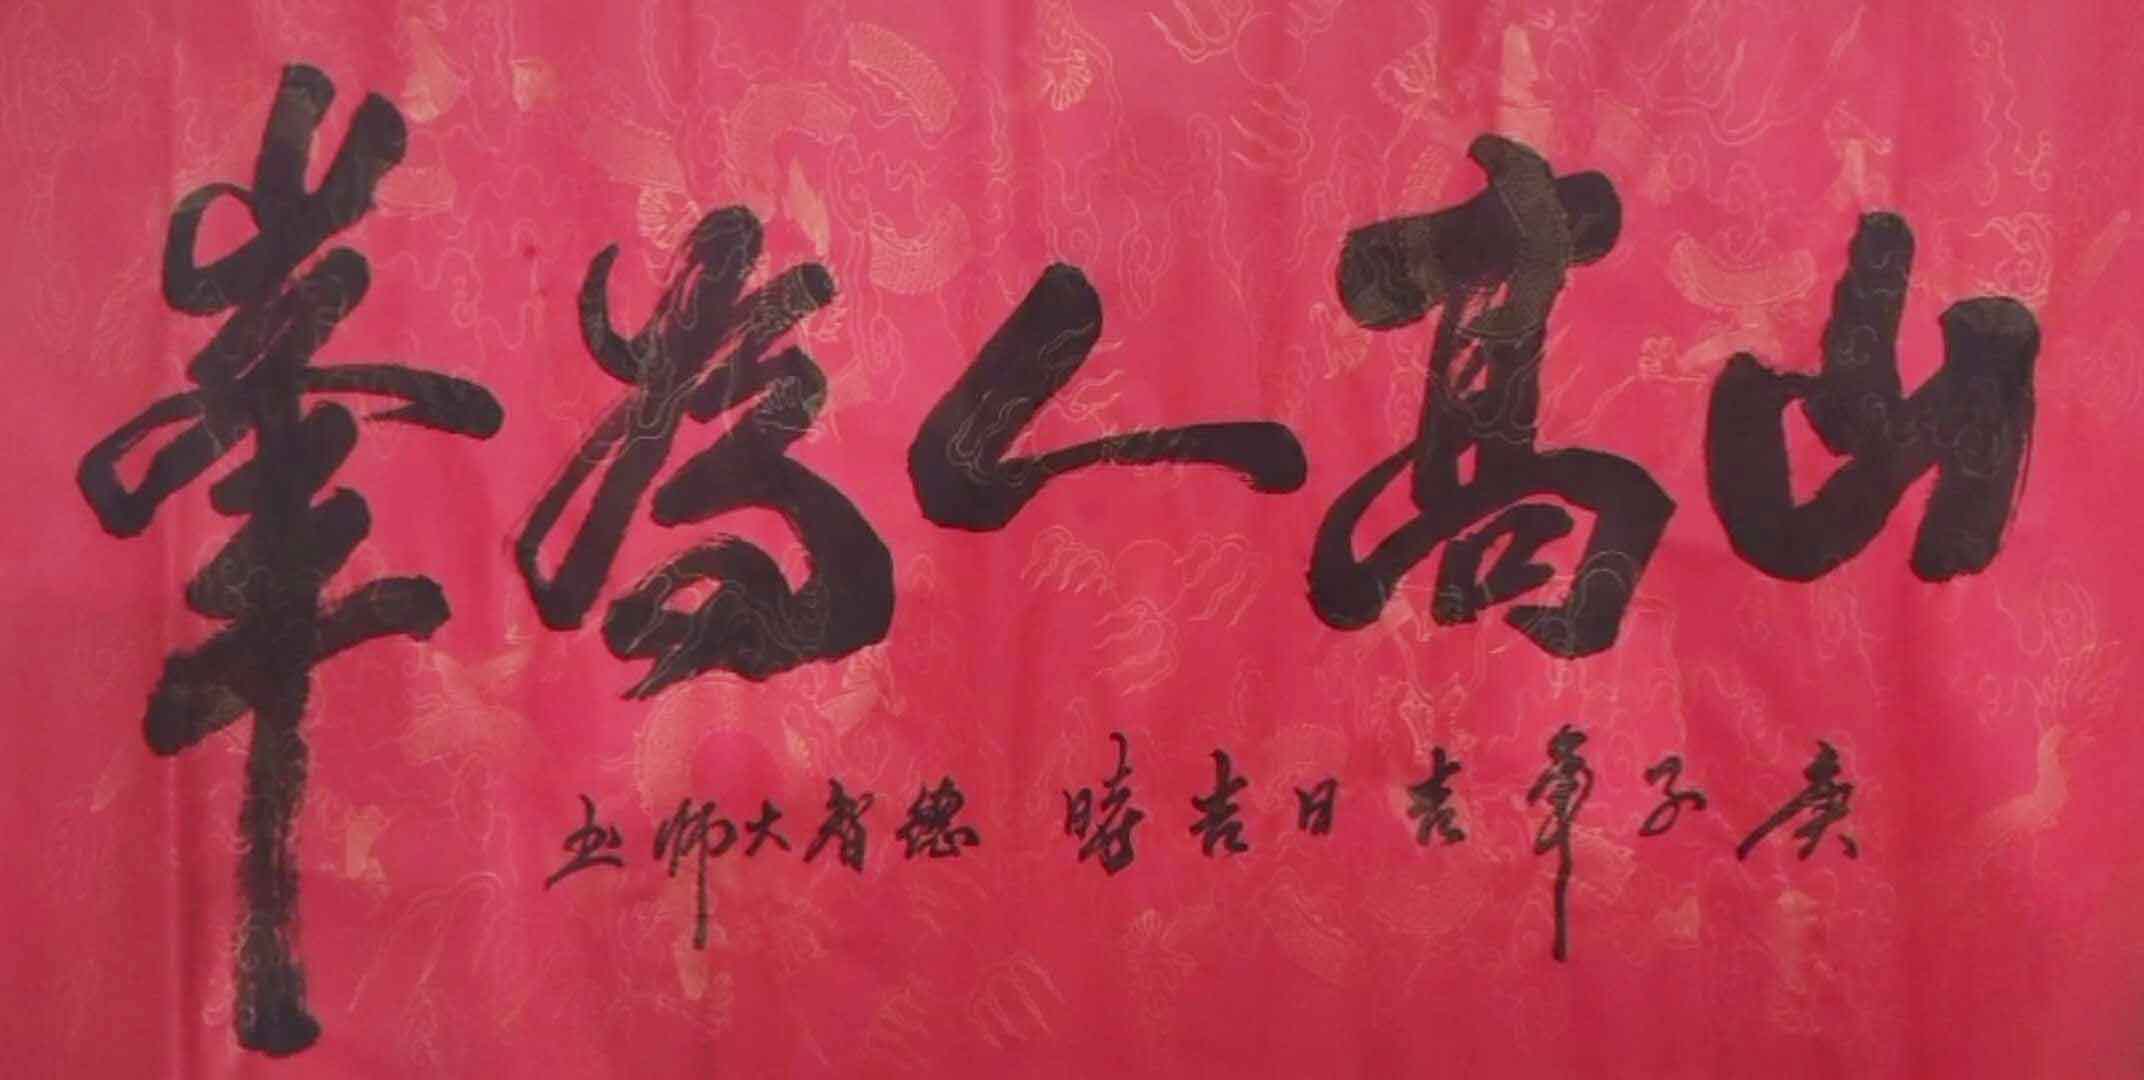 山高人為峯
庚子年吉日吉時 德智大师书